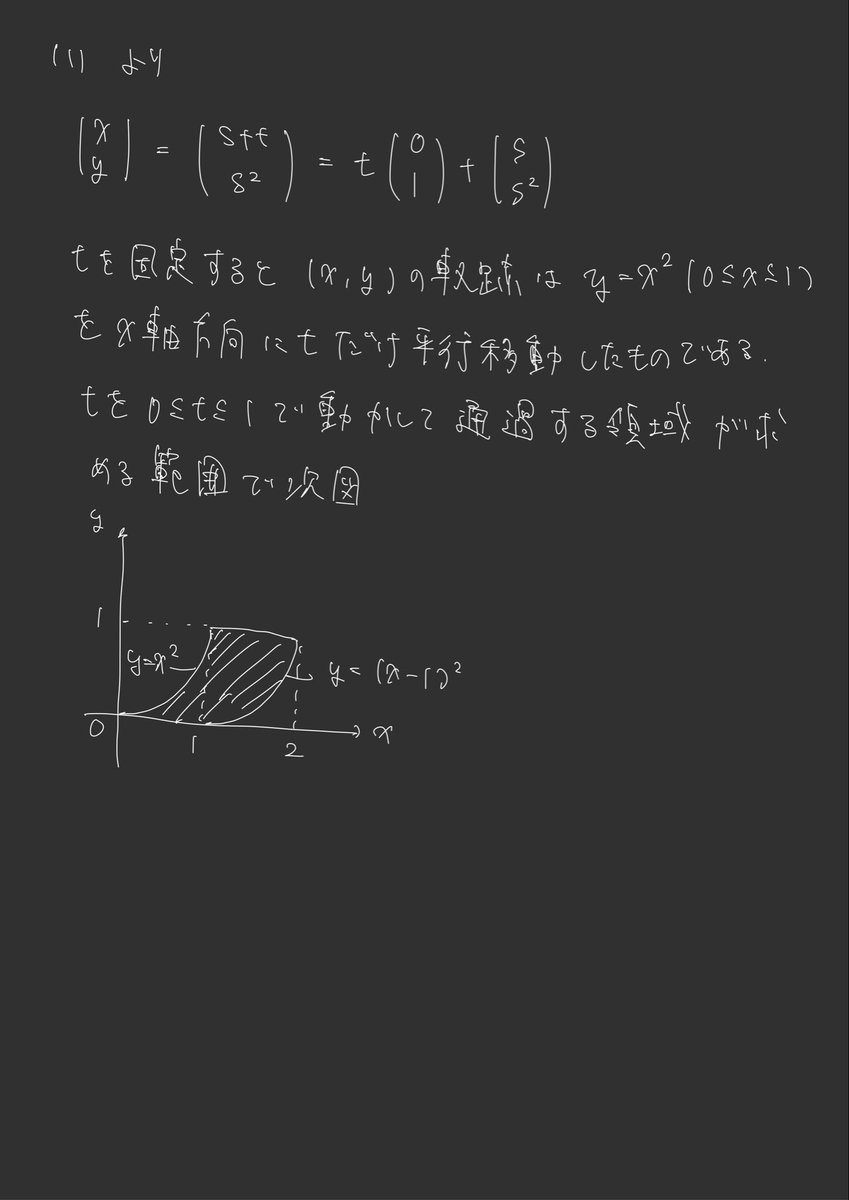 (1) より
(x y) = (s+t s²) = t(0 1) + (s s²)
tを固定すると (x, y) の軌跡は y = x² (0≤x≤1)
を x軸方向に t だけ平行移動したものである.
tを 0≤t≤1 で動かして 通過する領域 が求
める範囲で次図
y
1
y=x²
y = (x-1)²
0
1
2
x